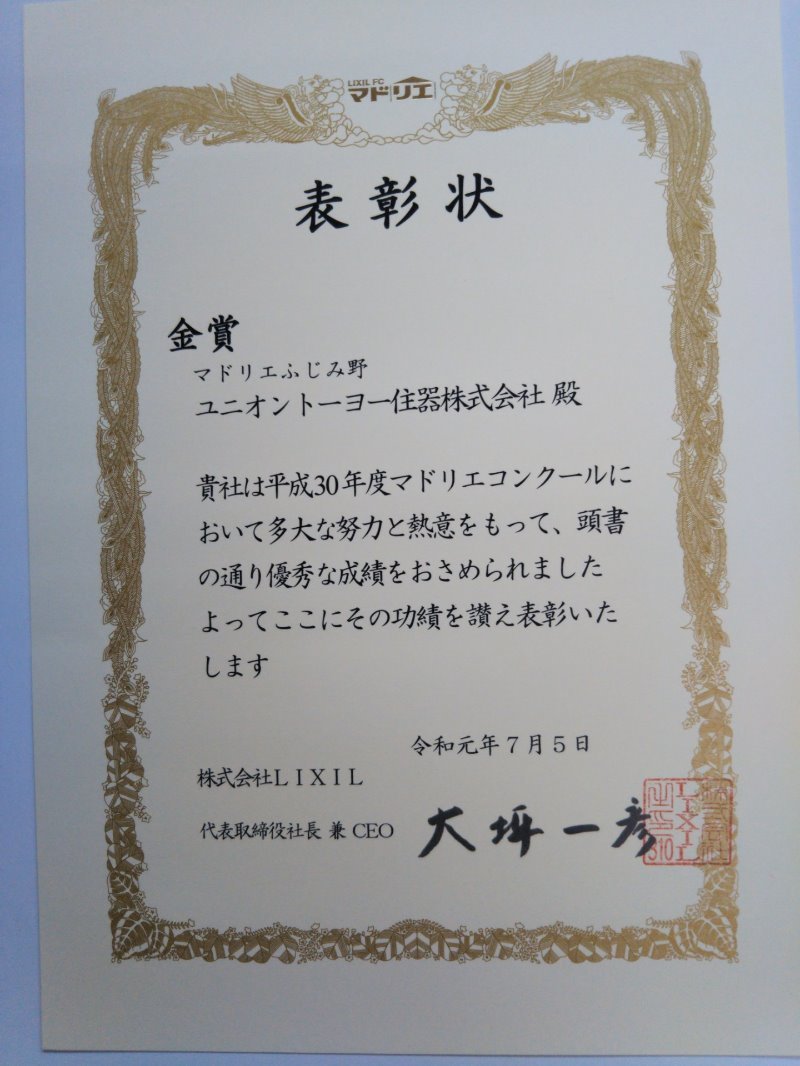 LIXIL FC
マドリエ
表彰状
金賞
マドリエふじみ野
ユニオントーヨー住器株式会社 殿
貴社は平成30年度マドリエコンクールに
おいて多大な努力と熱意をもって、頭書
の通り優秀な成績をおさめられました
よってここにその功績を讃え表彰いた
します
令和元年7月5日
株式会社LIXIL
代表取締役社長 兼 CEO
大坪一彦